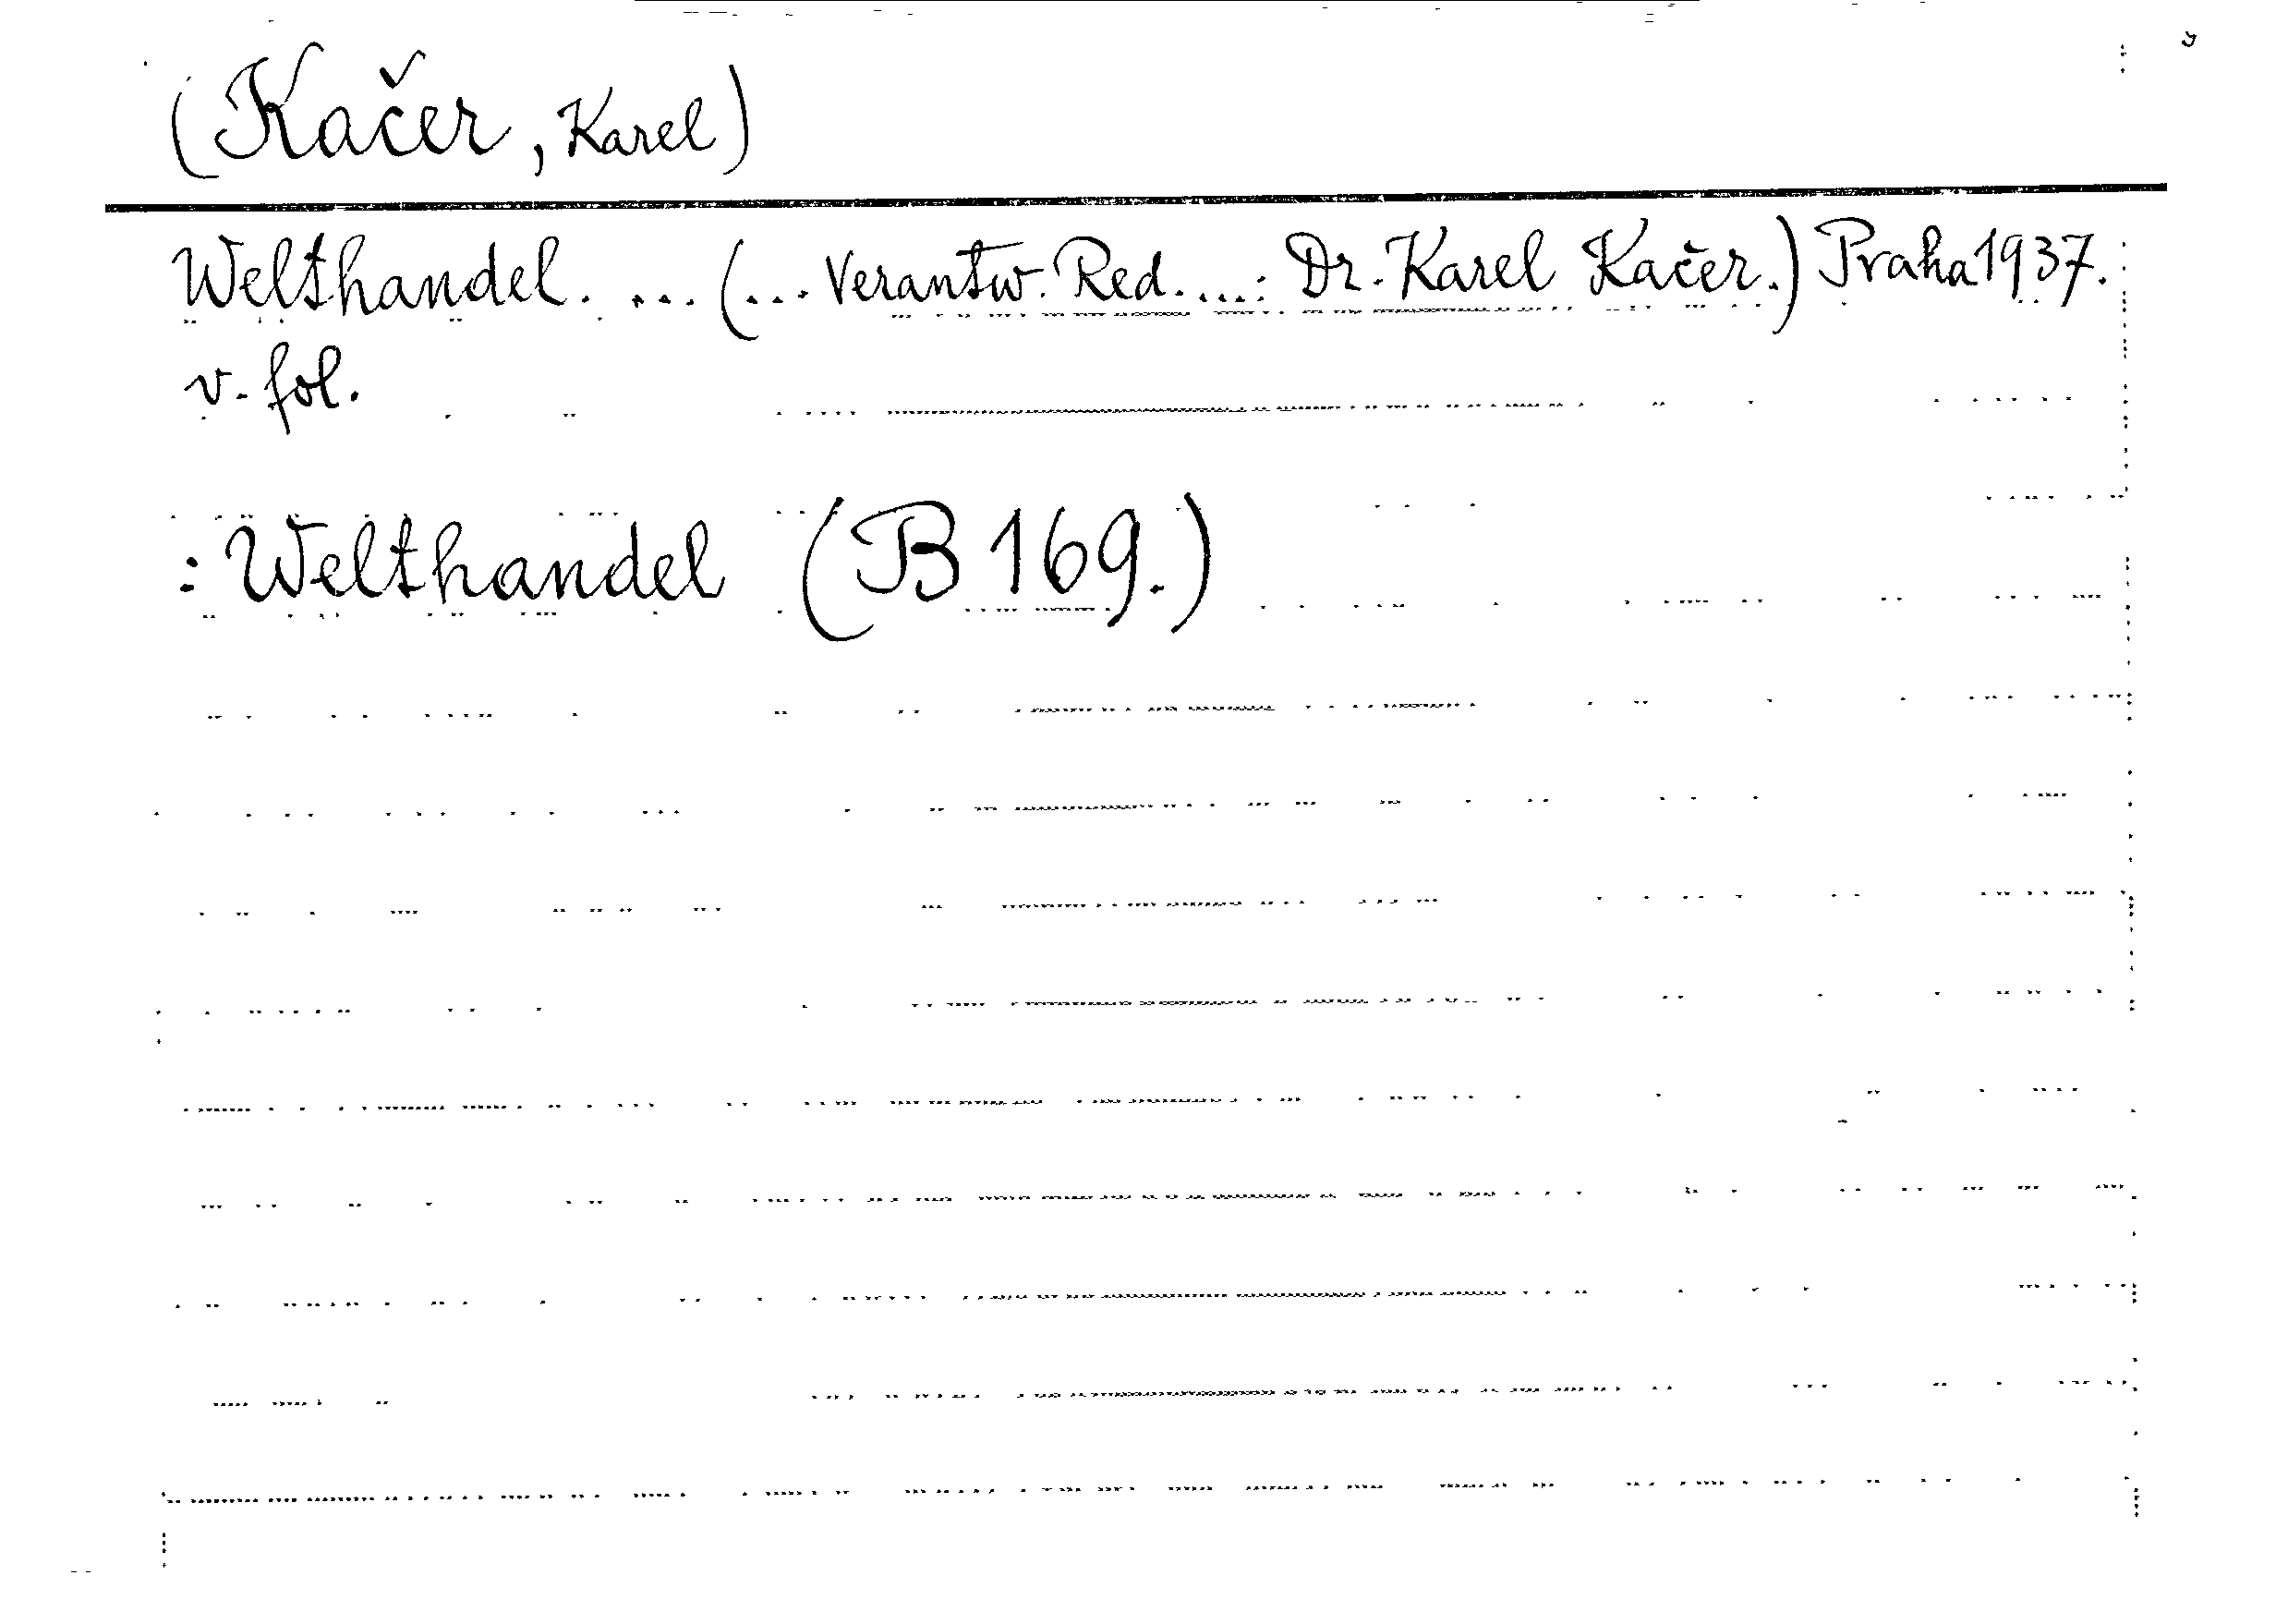 (Kačer, Karel)
Welthandel. ... (... Verantw. Red. ...: Dr. Karel Kačer.) Praha 1937.
v. fol.
: Welthandel (B 169.)